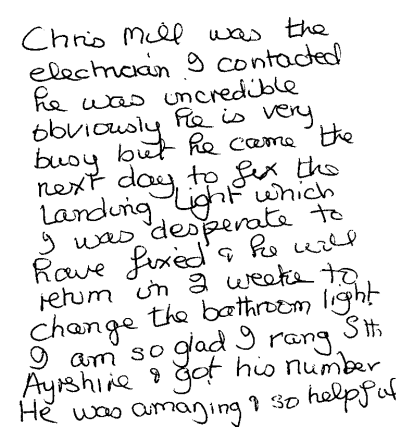 Chris Mill was the
electrician I contacted
he was incredible
obviously he is very
busy but he came the
next day to fix the
Landing Light which
I was desperate to
have fixed & he will
return in 2 weeks to
change the bathroom light
I am so glad I rang Sth
Ayrshire & got his number
He was amazing & so helpful